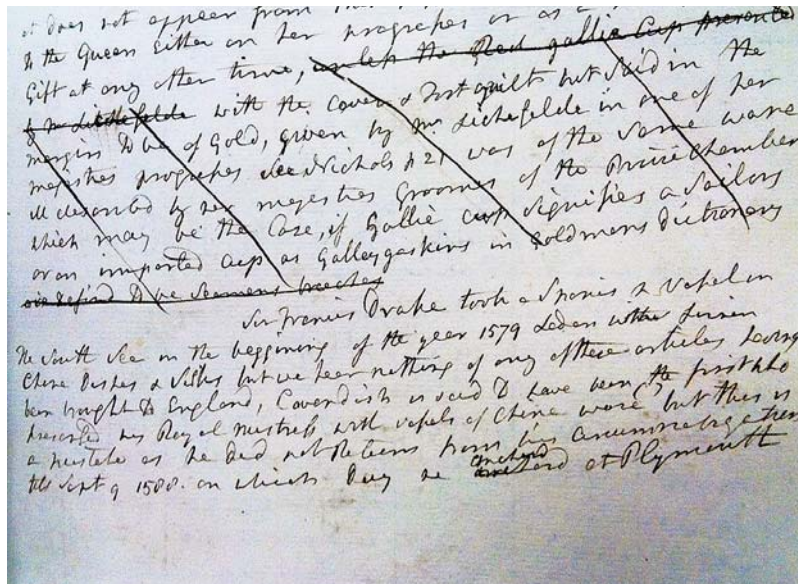 it does not appear from
to the Queen either on her progresses or as a
Gift at any other time, unless the Red gallie Cup presented
by Mr Lichefelde with the Cover & Not guilt but said in the
margin to be of Gold, given by Mr Lichefelde in one of her
majesties progresses see Nichols p 21 was of the same ware
ill described by her majesties Grooms of the Privie Chamber
which may be the Case, if Gallie cup signifies a Sailors
or an imported Cup as Galleygaskins in Coldmans Dictionary
are defined to be Seamens breeches
Sir Francis Drake took a Spanish Vessel in
the South Sea in the beginning of the year 1579 Laden with finein
China Dishes & Silks but we hear nothing of any of these articles having
been brought to England, Cavendish is said to have been the first who
presented his Royal mistress with vessels of China ware but this is
a mistake as he did not Return from his circumnavigation
till Sept 9 1588. on which Day he anchored at Plymouth